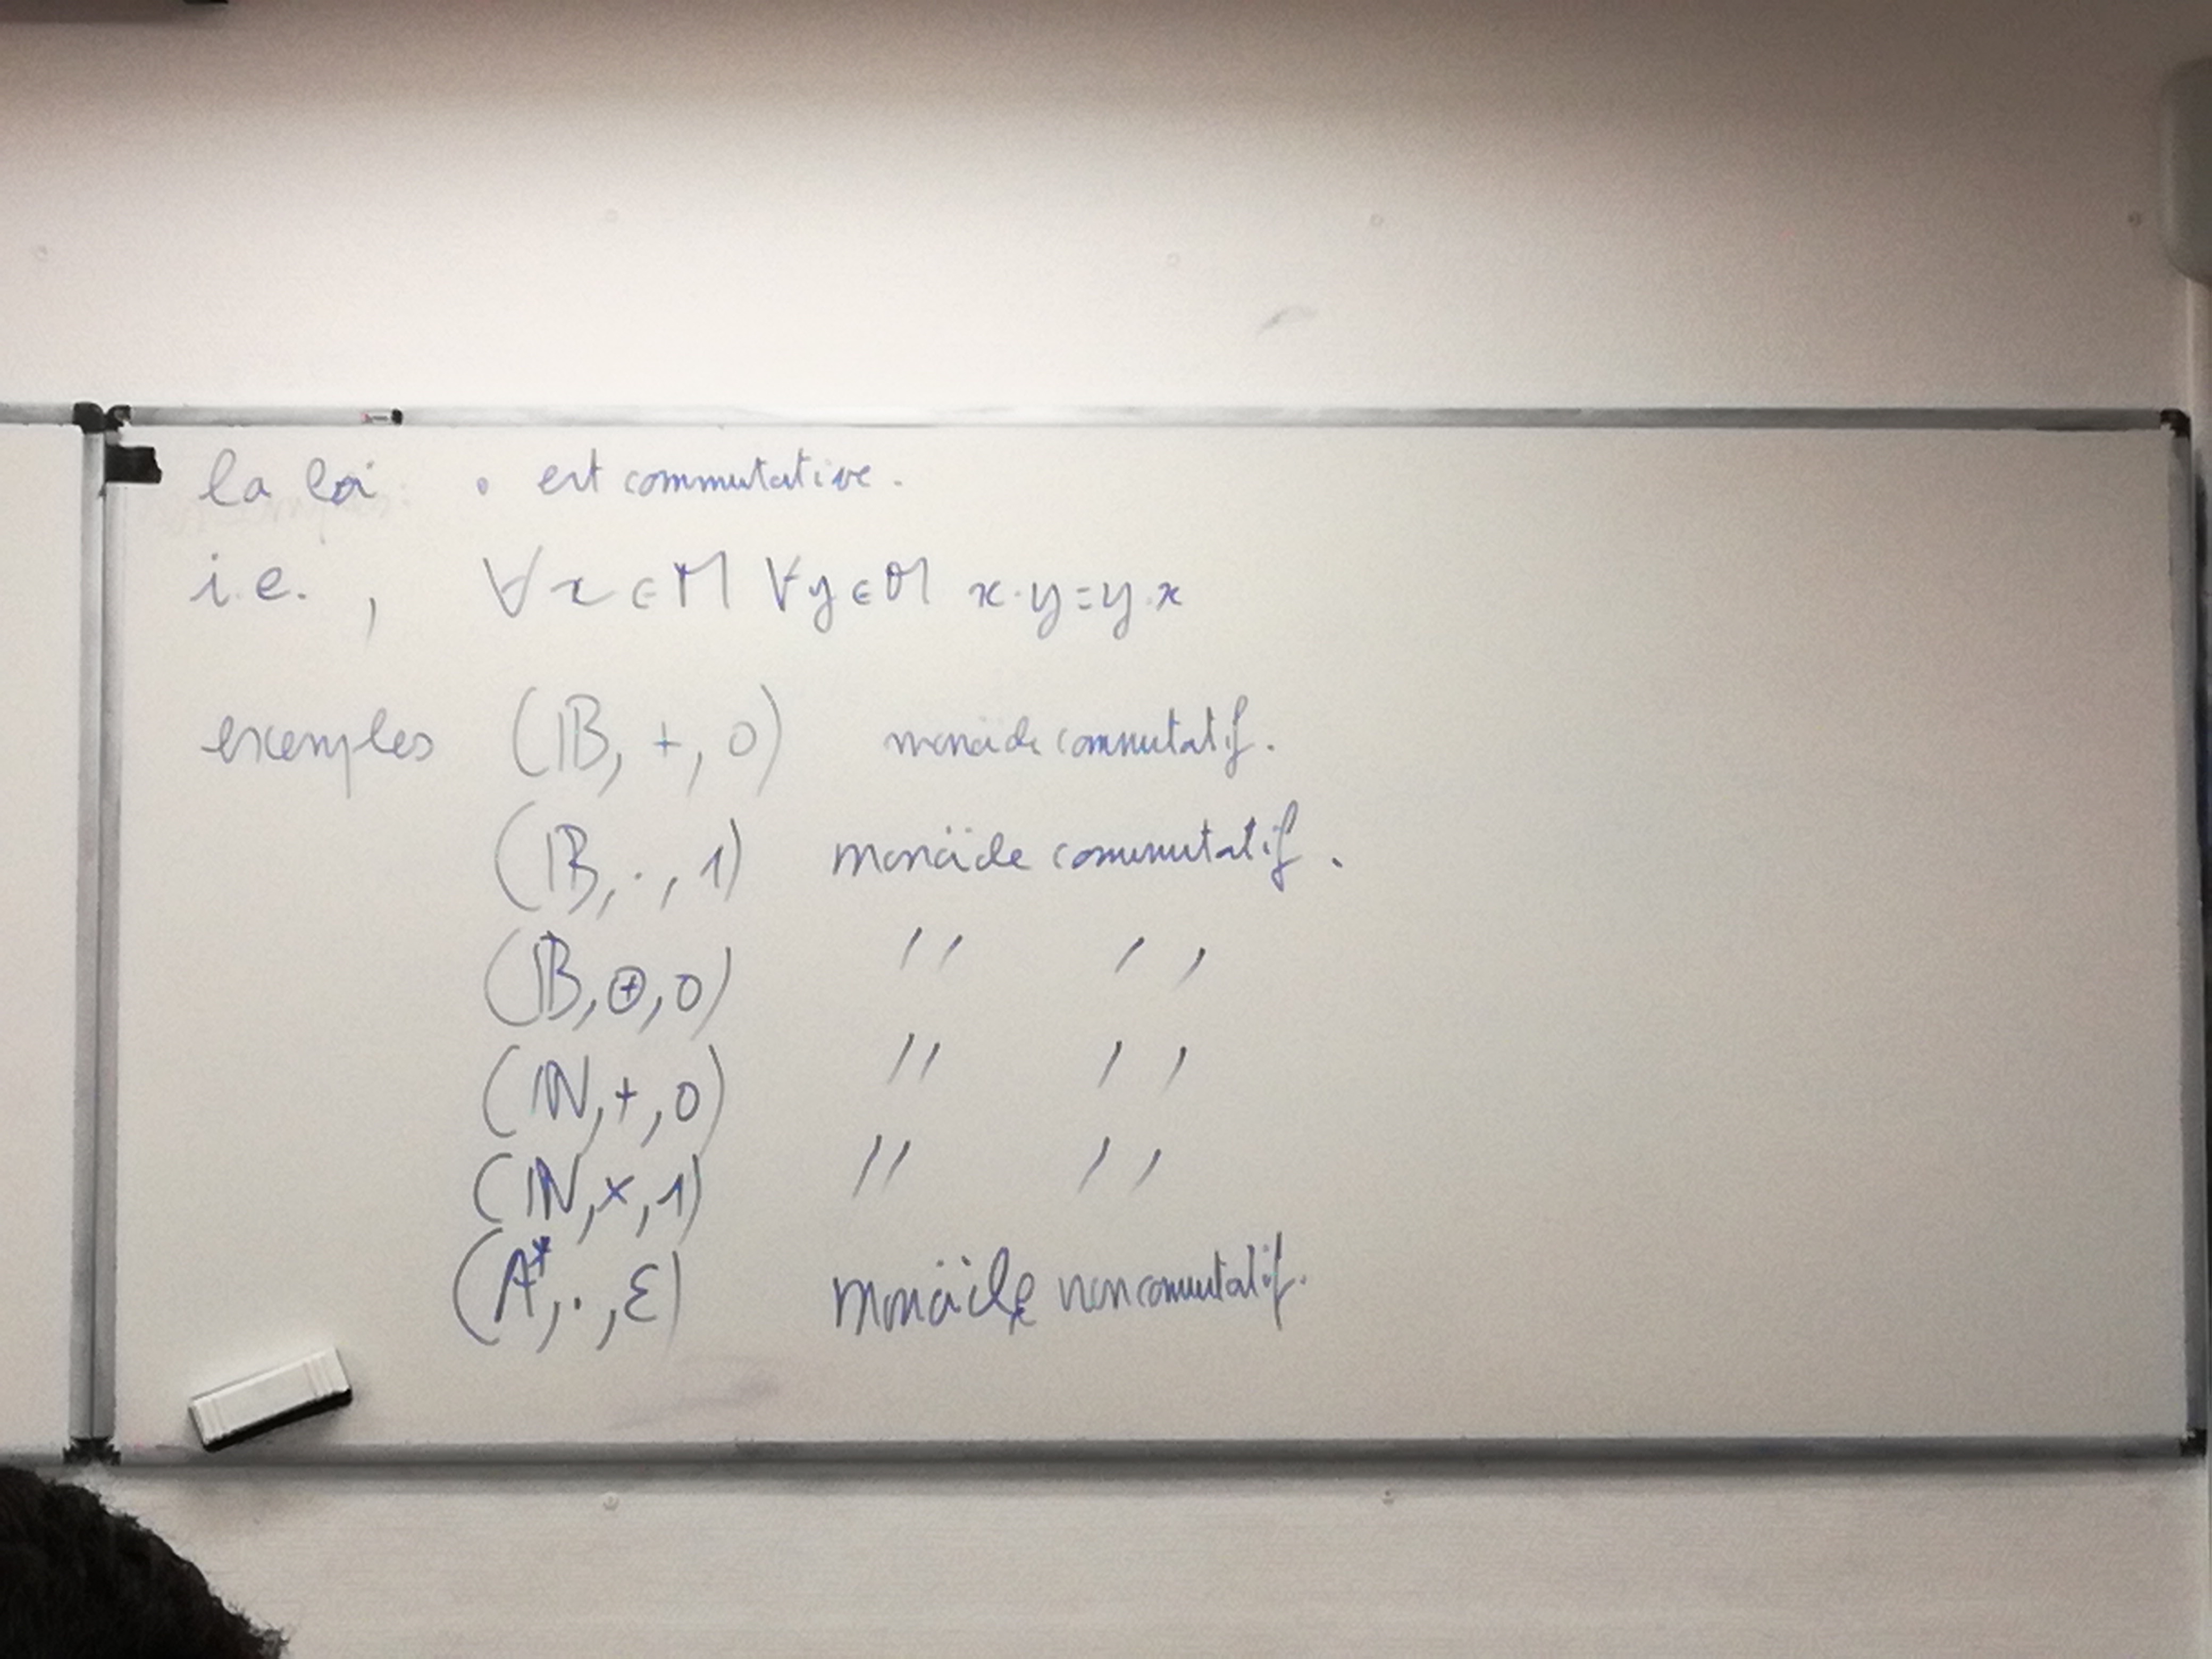 la loi • est commutative.
i.e. , ∀x∈M ∀y∈M x·y=y·x
exemples (𝔹, +, 0) monoïde commutatif.
(𝔹, ·, 1) monoïde commutatif.
(𝔹, ⊕, 0) " "
(ℕ, +, 0) " "
(ℕ, ×, 1) " "
(A*, ·, ε) monoïde non commutatif.